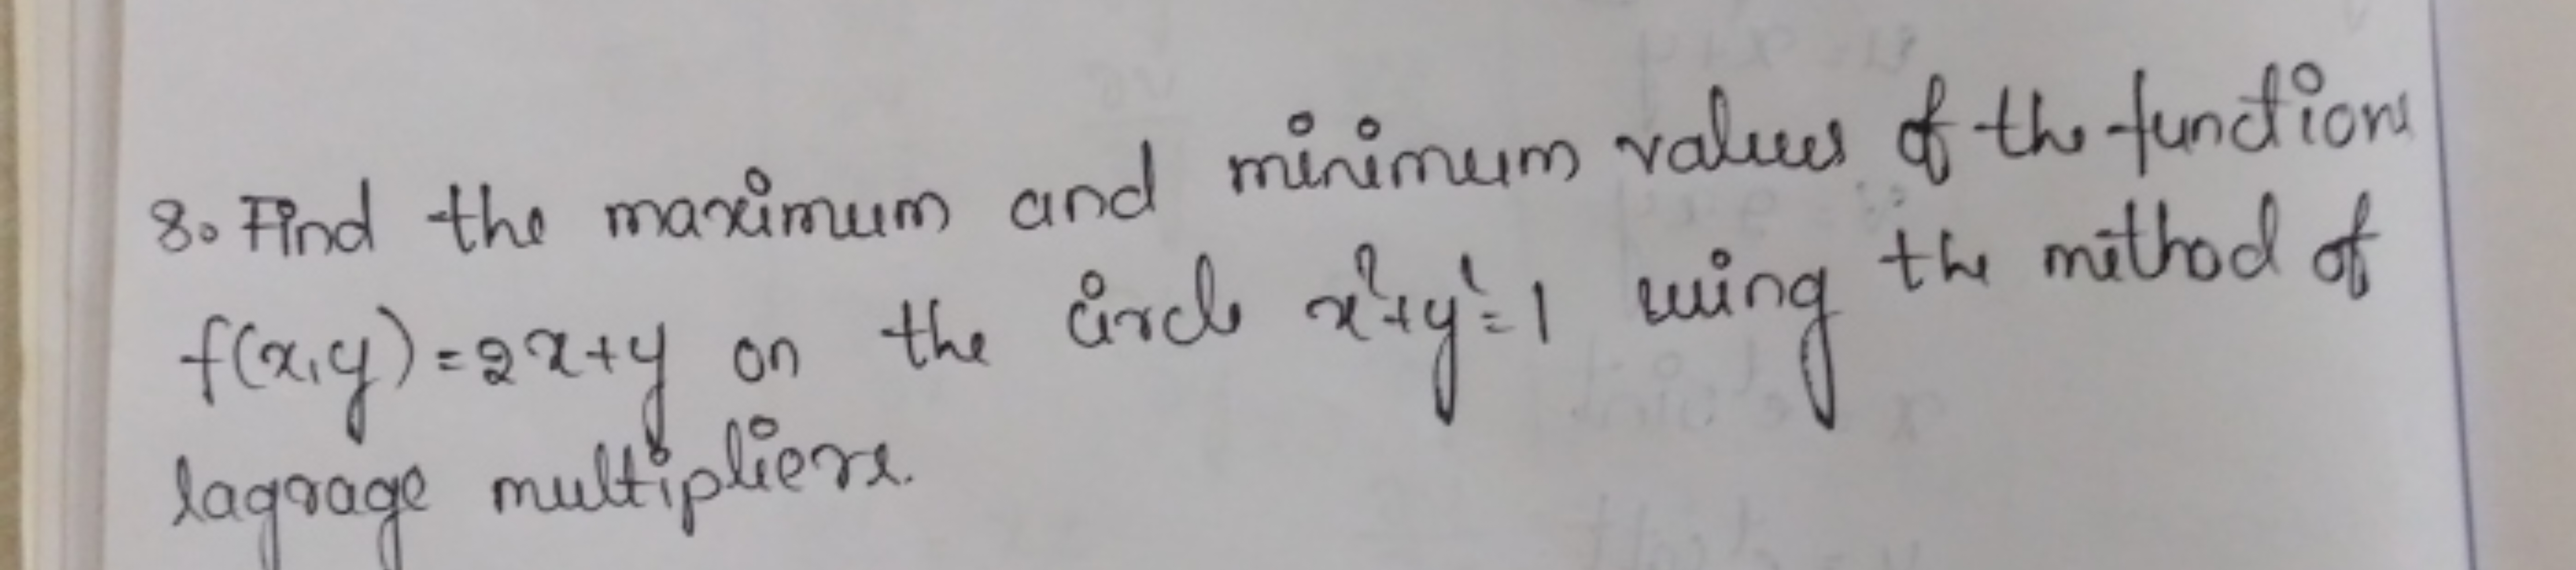 8. Find the maximum and minimum values of the functions
f(x,y)=2x+y on the circle x²+y²=1 using the method of
lagrage multipliers.